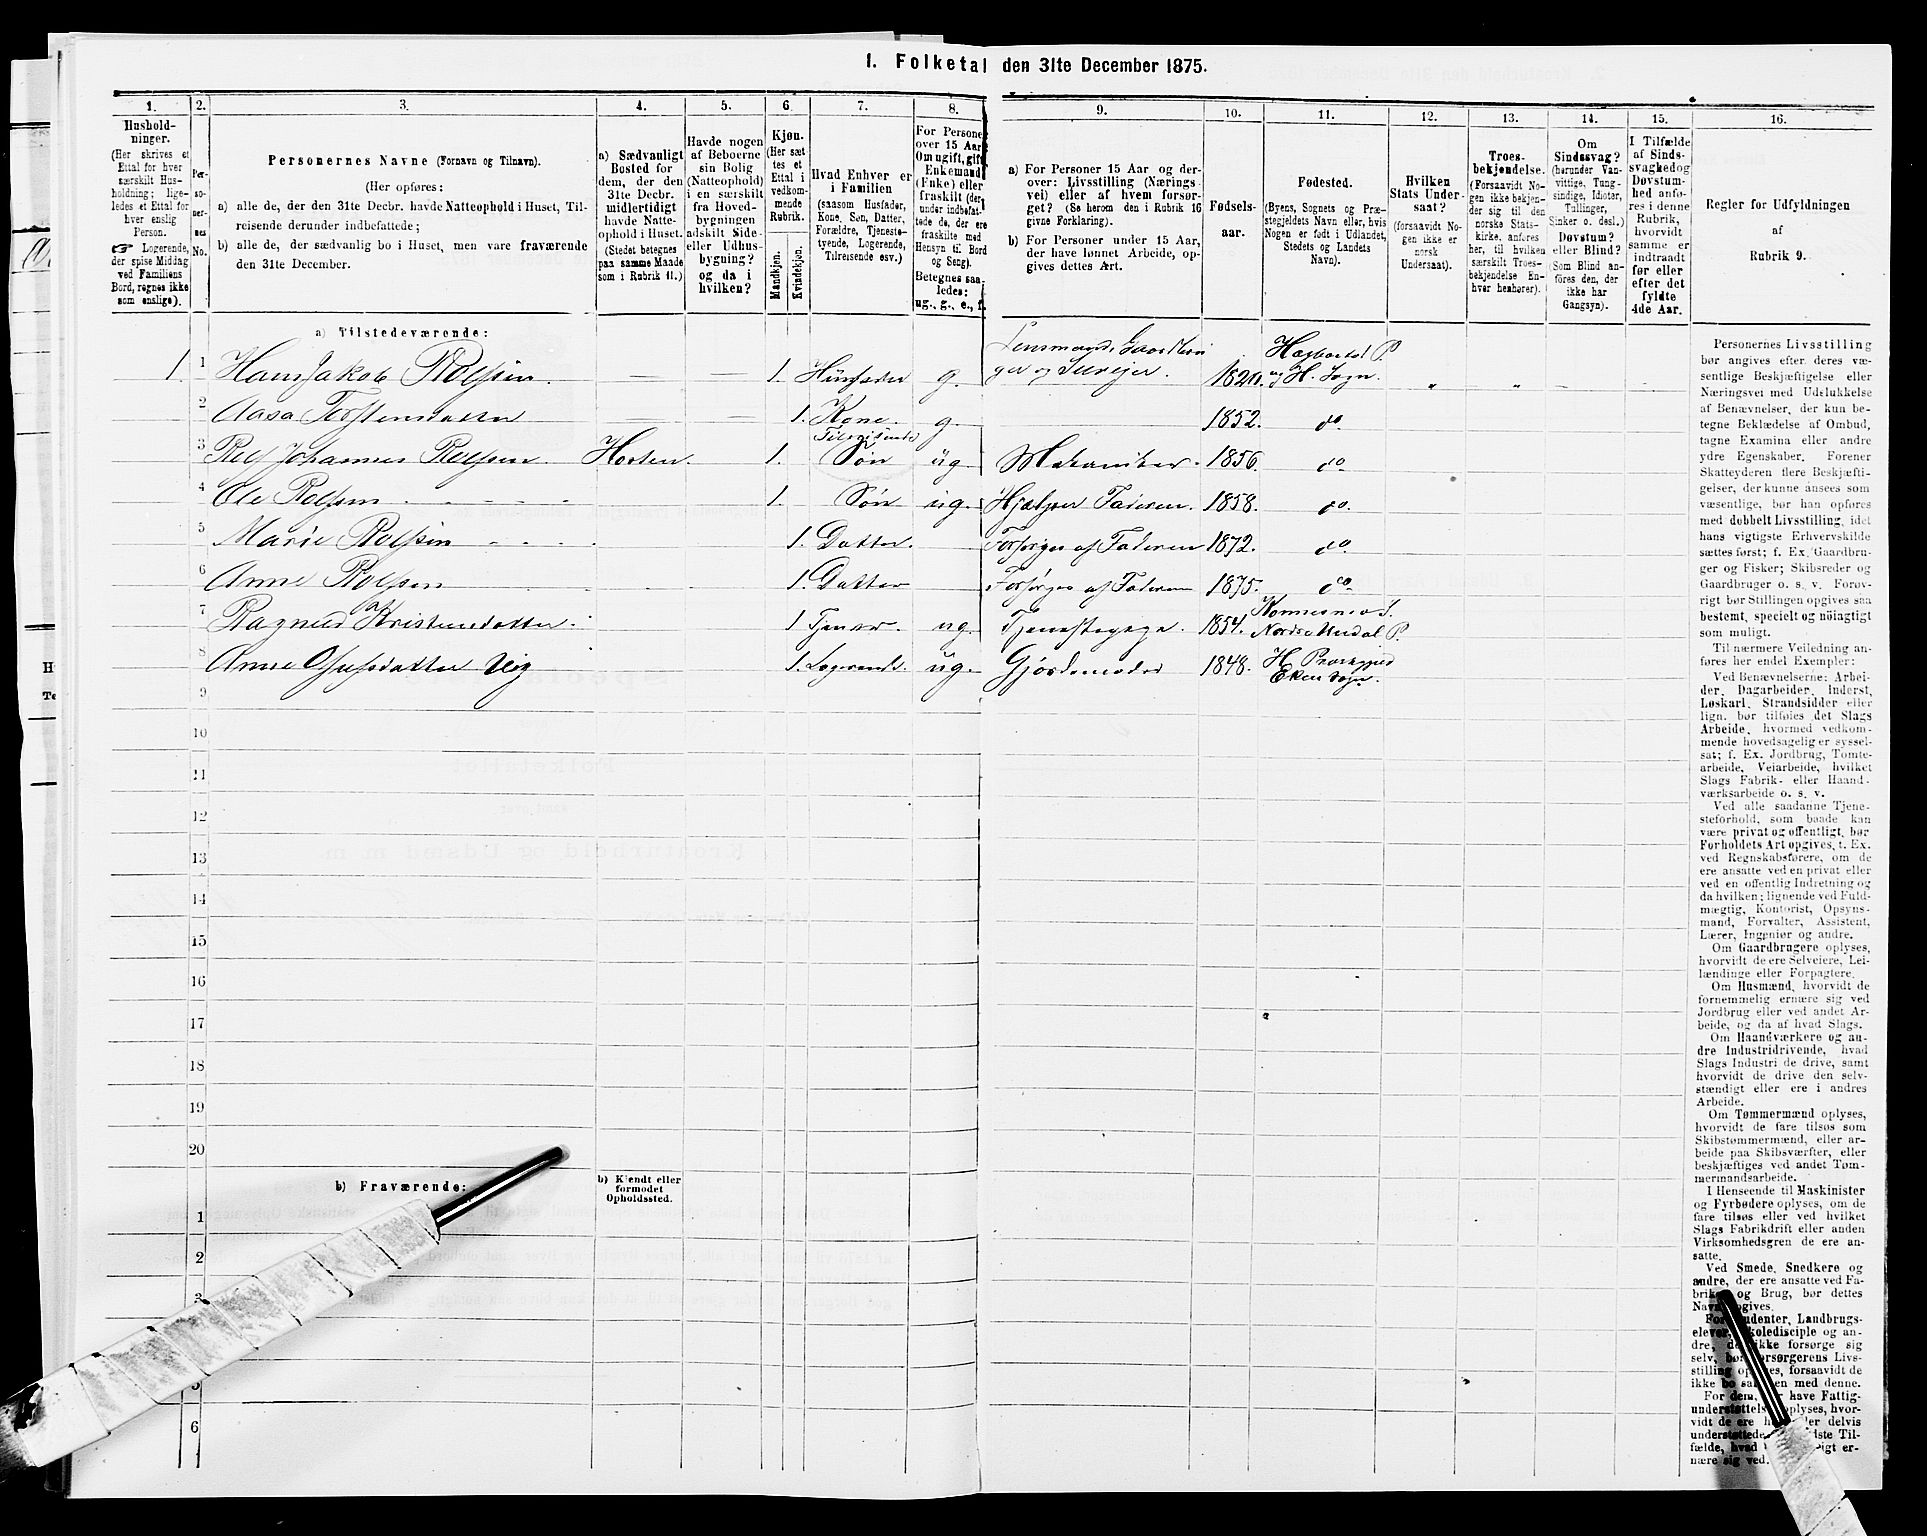 1. Folketal den 31te December 1875.
1. 2. 3. 4. 5. 6. 7. 8. 9. 10. 11. 12. 13. 14. 15. 16.
Hushold-
ninger.
(Her skrives et
Ettal for hver
særskilt Hus-
holdning; lige-
ledes et Ettal for
hver enslig
Person.
☞ Logerende,
der spise Middag
ved Familiens
Bord, regnes ikke
som enslige).
Per-
so-
ner-
nes
No.
Personernes Navne (Fornavn og Tilnavn).
(Her opføres:
a) alle de, der den 31te Decbr. havde Natteophold i Huset, Til-
reisende derunder indbefattede;
b) alle de, der sædvanlig bo i Huset, men vare fraværende
den 31te December.
a) Sædvanligt
Bosted for
dem, der den
31te Decbr.
midlertidigt
havde Natte-
ophold i Huset.
(Stedet betegnes
paa samme Maade
som i Rubrik 11.)
Havde nogen
af Beboerne
sin Bolig
(Natteophold)
i en særskilt
fra Hoved-
bygningen
adskilt Side-
eller Udhus-
bygning?
og da i
hvilken?
Kjøn.
(Her sæt-
tes et
Ettal i
vedkom-
mende
Rubrik.
Mandkjøn.
Kvindekjøn.
Hvad Enhver er
i Familien
(saasom Husfader,
Kone, Søn, Datter,
Forældre, Tjeneste-
tyende, Logerende,
Tilreisende osv.)
For Persone
over 15 Aar
Om ugift, gift
Enkemand
(Enke) eller
fraskilt (der-
under indbefat-
tede de, der ere
fraskilte med
Hensyn til Bord
og Seng).
Betegnes saa-
ledes:
ug., g., e., f.
a) For Personer 15 Aar og der-
over: Livsstilling (Nærings-
vei) eller af hvem forsør-
get? (Se herom den i Rubrik 16
givne Forklaring).
b) For Personer under 15 Aar,
der have lønnet Arbeide, op-
gives dettes Art.
Fødsels-
aar.
Fødested.
(Byens, Sognets og Præ-
stegjeldets Navn eller, hvis
Nogen er født i Udlandet,
Stedets og Landets
Navn).
Hvilken
Stats Under-
saat?
(forsaavidt No-
gen ikke er
norsk
Undersaat).
Troes-
bekjendelse.
(Forsaavidt No-
gen ikke bekjen-
der sig til den
norske Stats-
kirke, anføres
her, til hvilken
særskilt Troes-
bekjendelse En-
hver henhører).
Om
Sindssvag?
(herunder Van-
vittige, Tung-
sindige, Idioter,
Tullinger,
Sinker o. desl.)
Døvstum?
eller Blind?
(Som Blind an-
føres den, der
ikke har
Gangsyn).
I Tilfælde
af Sinds-
svaghed og
Døvstum-
hed anfø-
res i denne
Rubrik,
hvorvidt
samme er
indtraadt
før eller
efter det
fyldte
4de Aar.
Regler for Udfyldningen
af
Rubrik 9.
a) Tilstedeværende:
1 1 Hans Jakob Rolfsen. — — 1. Husfader g. Lensmand, Gaardbru
ger og Selveier. 1820. Hægbostad P.
og H. Sogn. „ „ - -
2 Aasa Torstensdatter — — 1. Kone. g. 1852. do.
3 Rolf Johannes Rolfsen. Horten. 1. Tilreisende
Søn ug. Mekaniker. 1856. do
4 Ole Rolfsen 1. Søn ug. Hjælper Faderen. 1858. do.
5 Marie Rolfsen 1. Datter. Forsørges af Faderen 1872. do.
6 Anne Rolfsen 1. Datter Forsørges af Faderen 1875. do.
7 Ragnild Kristensdatter. 1 Tjener. ug. Tjenestepige. 1854. Konnesmo S.
Nordre Undal P.
8 Anne 1. Logerende. ug. Gjordemoder 1848. H. Præstegjeld
Eken Sogn.
9
10
11
12
13
14
15
16
17
18
19
20
b) Fraværende:
b) Kjendt eller
formodet
Opholdssted.
1
2
3
5
6
Personernes Livsstilling
bør angives efter deres væ-
sentlige Beskjæftigelse eller
Næringsvei med Udelukkelse
af Benævnelser, der kun be-
tegne Beklædelse af Ombud,
tagne Examina eller andre
ydre Egenskaber. Forener
Skatteyderen flere Beskjæfti-
gelser, der kunne ansees som
væsentlige, bør han opføres
med dobbelt Livsstilling, idet
hans vigtigste Erhvervskilde
sættes først; f. Ex. Gaardbru-
ger og Fisker; Skibsreder og
Gaardbruger o. s. v. Forøv-
rigt bør Stillingen opgives saa
bestemt, specielt og nøiagtigt
som muligt.
Til nærmere Veiledning an-
føres her endel Exempler:
Ved Benævnelserne: Arbei-
der, Dagarbeider, Inderst,
Løskarl, Strandsidder eller
lign. bør tilføies det Slags
Arbeide, hvormed vedkom-
mende hovedsagelig er syssel-
sat; f. Ex. Jordbrug, Tomte-
arbeide, Veiarbeide, hvilket
Slags Fabrik- eller Haand-
værksarbeide o. s. v.
Ved alle saadanne Tjene-
steforhold, som baade kan
være privat og offentligt, bør
Forholdets Art opgives, t. Ex.
ved Regnskabsførere, om de
ere ansatte ved en privat eller
ved en offentlig Indretning og
da hvilken; lignende ved Fuld-
mægtig, Kontorist, Opsyns-
mand, Forvalter, Assistent,
Lærer, Ingeniør og andre.
Om Gaardbrugere oplyses,
hvorvidt de ere Selveiere, Lei-
lændinge eller Forpagtere.
Om Husmænd, hvorvidt de
fornemmelig ernære sig ved
Jordbrug eller ved andet Ar-
beide, og da af hvad Slags.
Om Haandværkere og an-
dre Industridrivende, hvad
Slags Industri de drive, samt
hvorvidt de drive den selv-
stændigt eller ere i andres
Arbeide.
Om Tømmermænd oplyses,
hvorvidt de fare tilsøs som
Skibstømmermænd, eller ar-
beide paa Skibsværfter, eller
beskjæftiges ved andet Tøm-
mermandsarbeide.
I Henseende til Maskinister
og Fyrbødere oplyses, om de
fare tilsøs eller ved hvilket
Slags Fabrikdrift eller anden
Virksomhedsgren de ere an-
satte.
Ved Smede, Snedkere og
andre, der ere ansatte ved Fa-
briker og Brug, bør dettes
Navn opgives.
For Studenter, Landbrugs-
elever, Skoledisciple og an-
dre, der ikke forsørge sig
selv, bør Forsørgerens Livs-
stilling opgives, forsaavidt de
ikke bo sammen med denne.
For dem, der have Fattig-
understøttelse oplyses, hvor-
vidt de ere helt eller delvis
understøttede sidste Til-
fælde, hvad er-
nære sig ved.